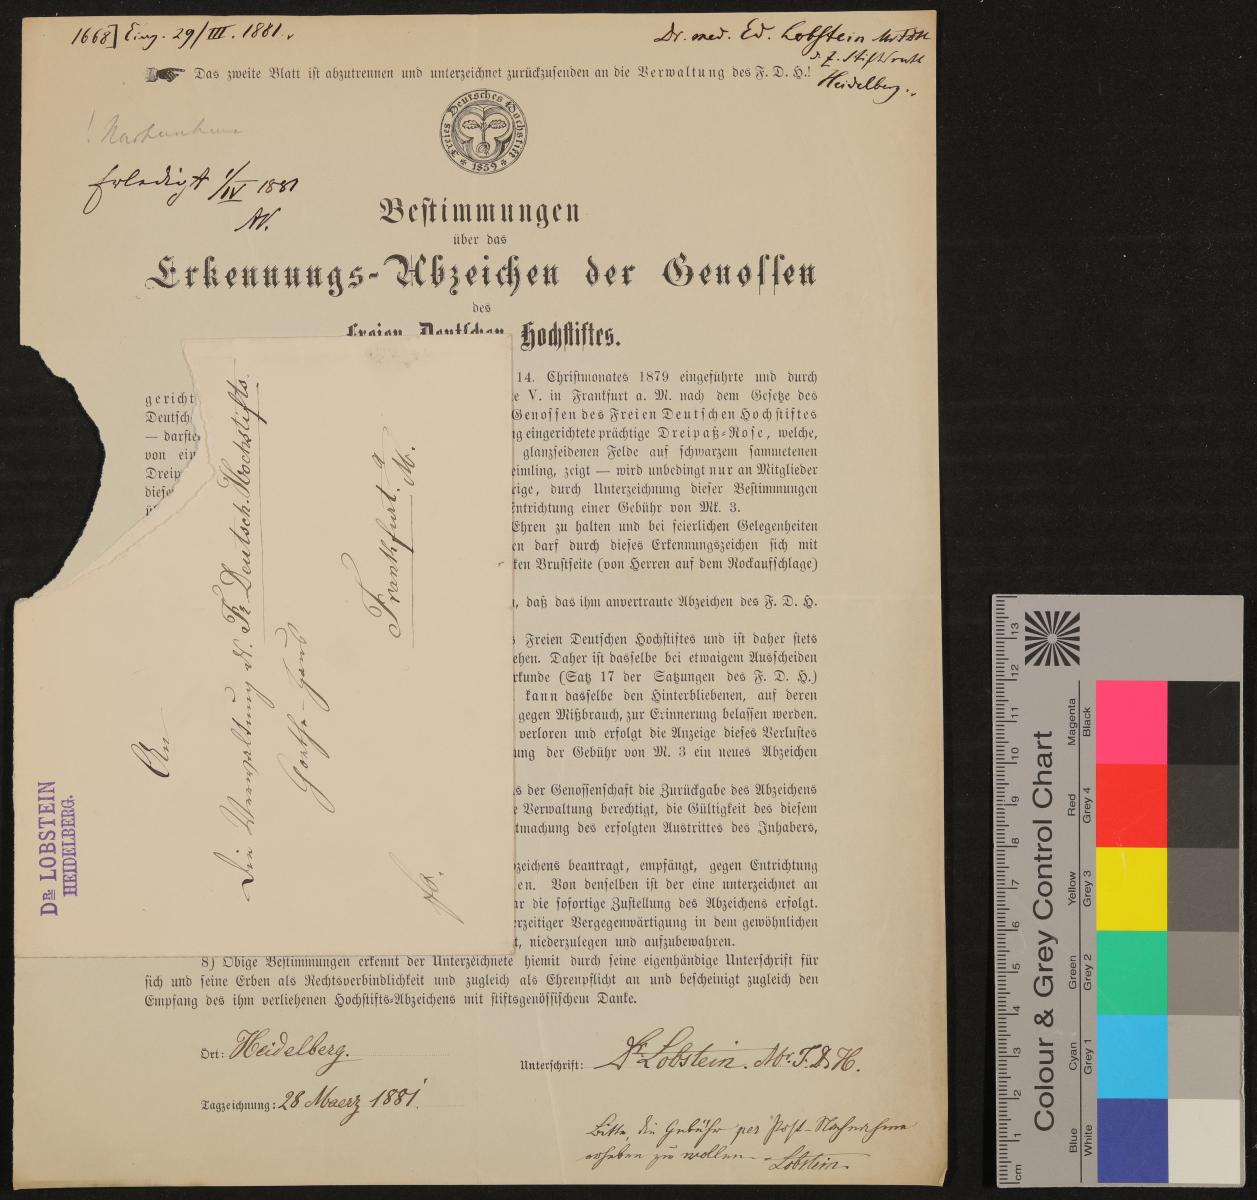 1668] Eing. 29/III. 1881.
Dr. med. Ed. Lobstein
Heidelberg.
Das zweite Blatt ist abzutrennen und unterzeichnet zurückzusenden an die Verwaltung des F. D. H.!
Freies Deutsches Hochstift
1859
Erledigt 1/IV 1881
Bestimmungen
über das
Erkennungs-Abzeichen der Genossen
des
Freien Deutschen Hochstiftes.
14. Christmonates 1879 eingeführte und durch
gericht
e V. in Frankfurt a. M. nach dem Gesetze des
Deutsch
Genossen des Freien Deutschen Hochstiftes
— darste
ng eingerichtete prächtige Dreipaß-Rose, welche,
von ein
glanzseidenen Felde auf schwarzem sammetenen
Dreip
eimling, zeigt — wird unbedingt nur an Mitglieder
diese
rige, durch Unterzeichnung dieser Bestimmungen
ntrichtung einer Gebühr von Mk. 3.
Ehren zu halten und bei feierlichen Gelegenheiten
en darf durch dieses Erkennungszeichen sich mit
ken Brustseite (von Herren auf dem Rockaufschlage)
, daß das ihm anvertraute Abzeichen des F. D. H.
s Freien Deutschen Hochstiftes und ist daher stets
ehen. Daher ist dasselbe bei etwaigem Ausscheiden
kunde (Satz 17 der Satzungen des F. D. H.)
kann dasselbe den Hinterbliebenen, auf deren
gegen Mißbrauch, zur Erinnerung belassen werden.
verloren und erfolgt die Anzeige dieses Verlustes
ung der Gebühr von M. 3 ein neues Abzeichen
s der Genossenschaft die Zurückgabe des Abzeichens
e Verwaltung berechtigt, die Gültigkeit des diesem
tmachung des erfolgten Austrittes des Inhabers,
zeichens beantragt, empfängt, gegen Entrichtung
en. Von denselben ist der eine unterzeichnet an
r die sofortige Zustellung des Abzeichens erfolgt.
erzeitiger Vergegenwärtigung in dem gewöhnlichen
t, niederzulegen und aufzubewahren.
8) Obige Bestimmungen erkennt der Unterzeichnete hiemit durch seine eigenhändige Unterschrift für
sich und seine Erben als Rechtsverbindlichkeit und zugleich als Ehrenpflicht an und bescheinigt zugleich den
Empfang des ihm verliehenen Hochstifts-Abzeichens mit stiftsgenössischem Danke.
Ort: Heidelberg.
Unterschrift: Dr. Lobstein. Mr. F. D. H.
Tagzeichnung: 28 Maerz 1881.
Bitte, die Gebühr per Post-Nachnahme
erheben zu wollen. Lobstein.
An
Die Verwaltung d. Fr. Deutsch. Hochstifts.
Goethe-Haus
Frankfurt a
M.
DR. LOBSTEIN
HEIDELBERG.
Colour & Grey Control Chart
Blue Cyan Green Yellow Red Magenta
White Grey 1 Grey 2 Grey 3 Grey 4 Black
cm 1 2 3 4 5 6 7 8 9 10 11 12 13